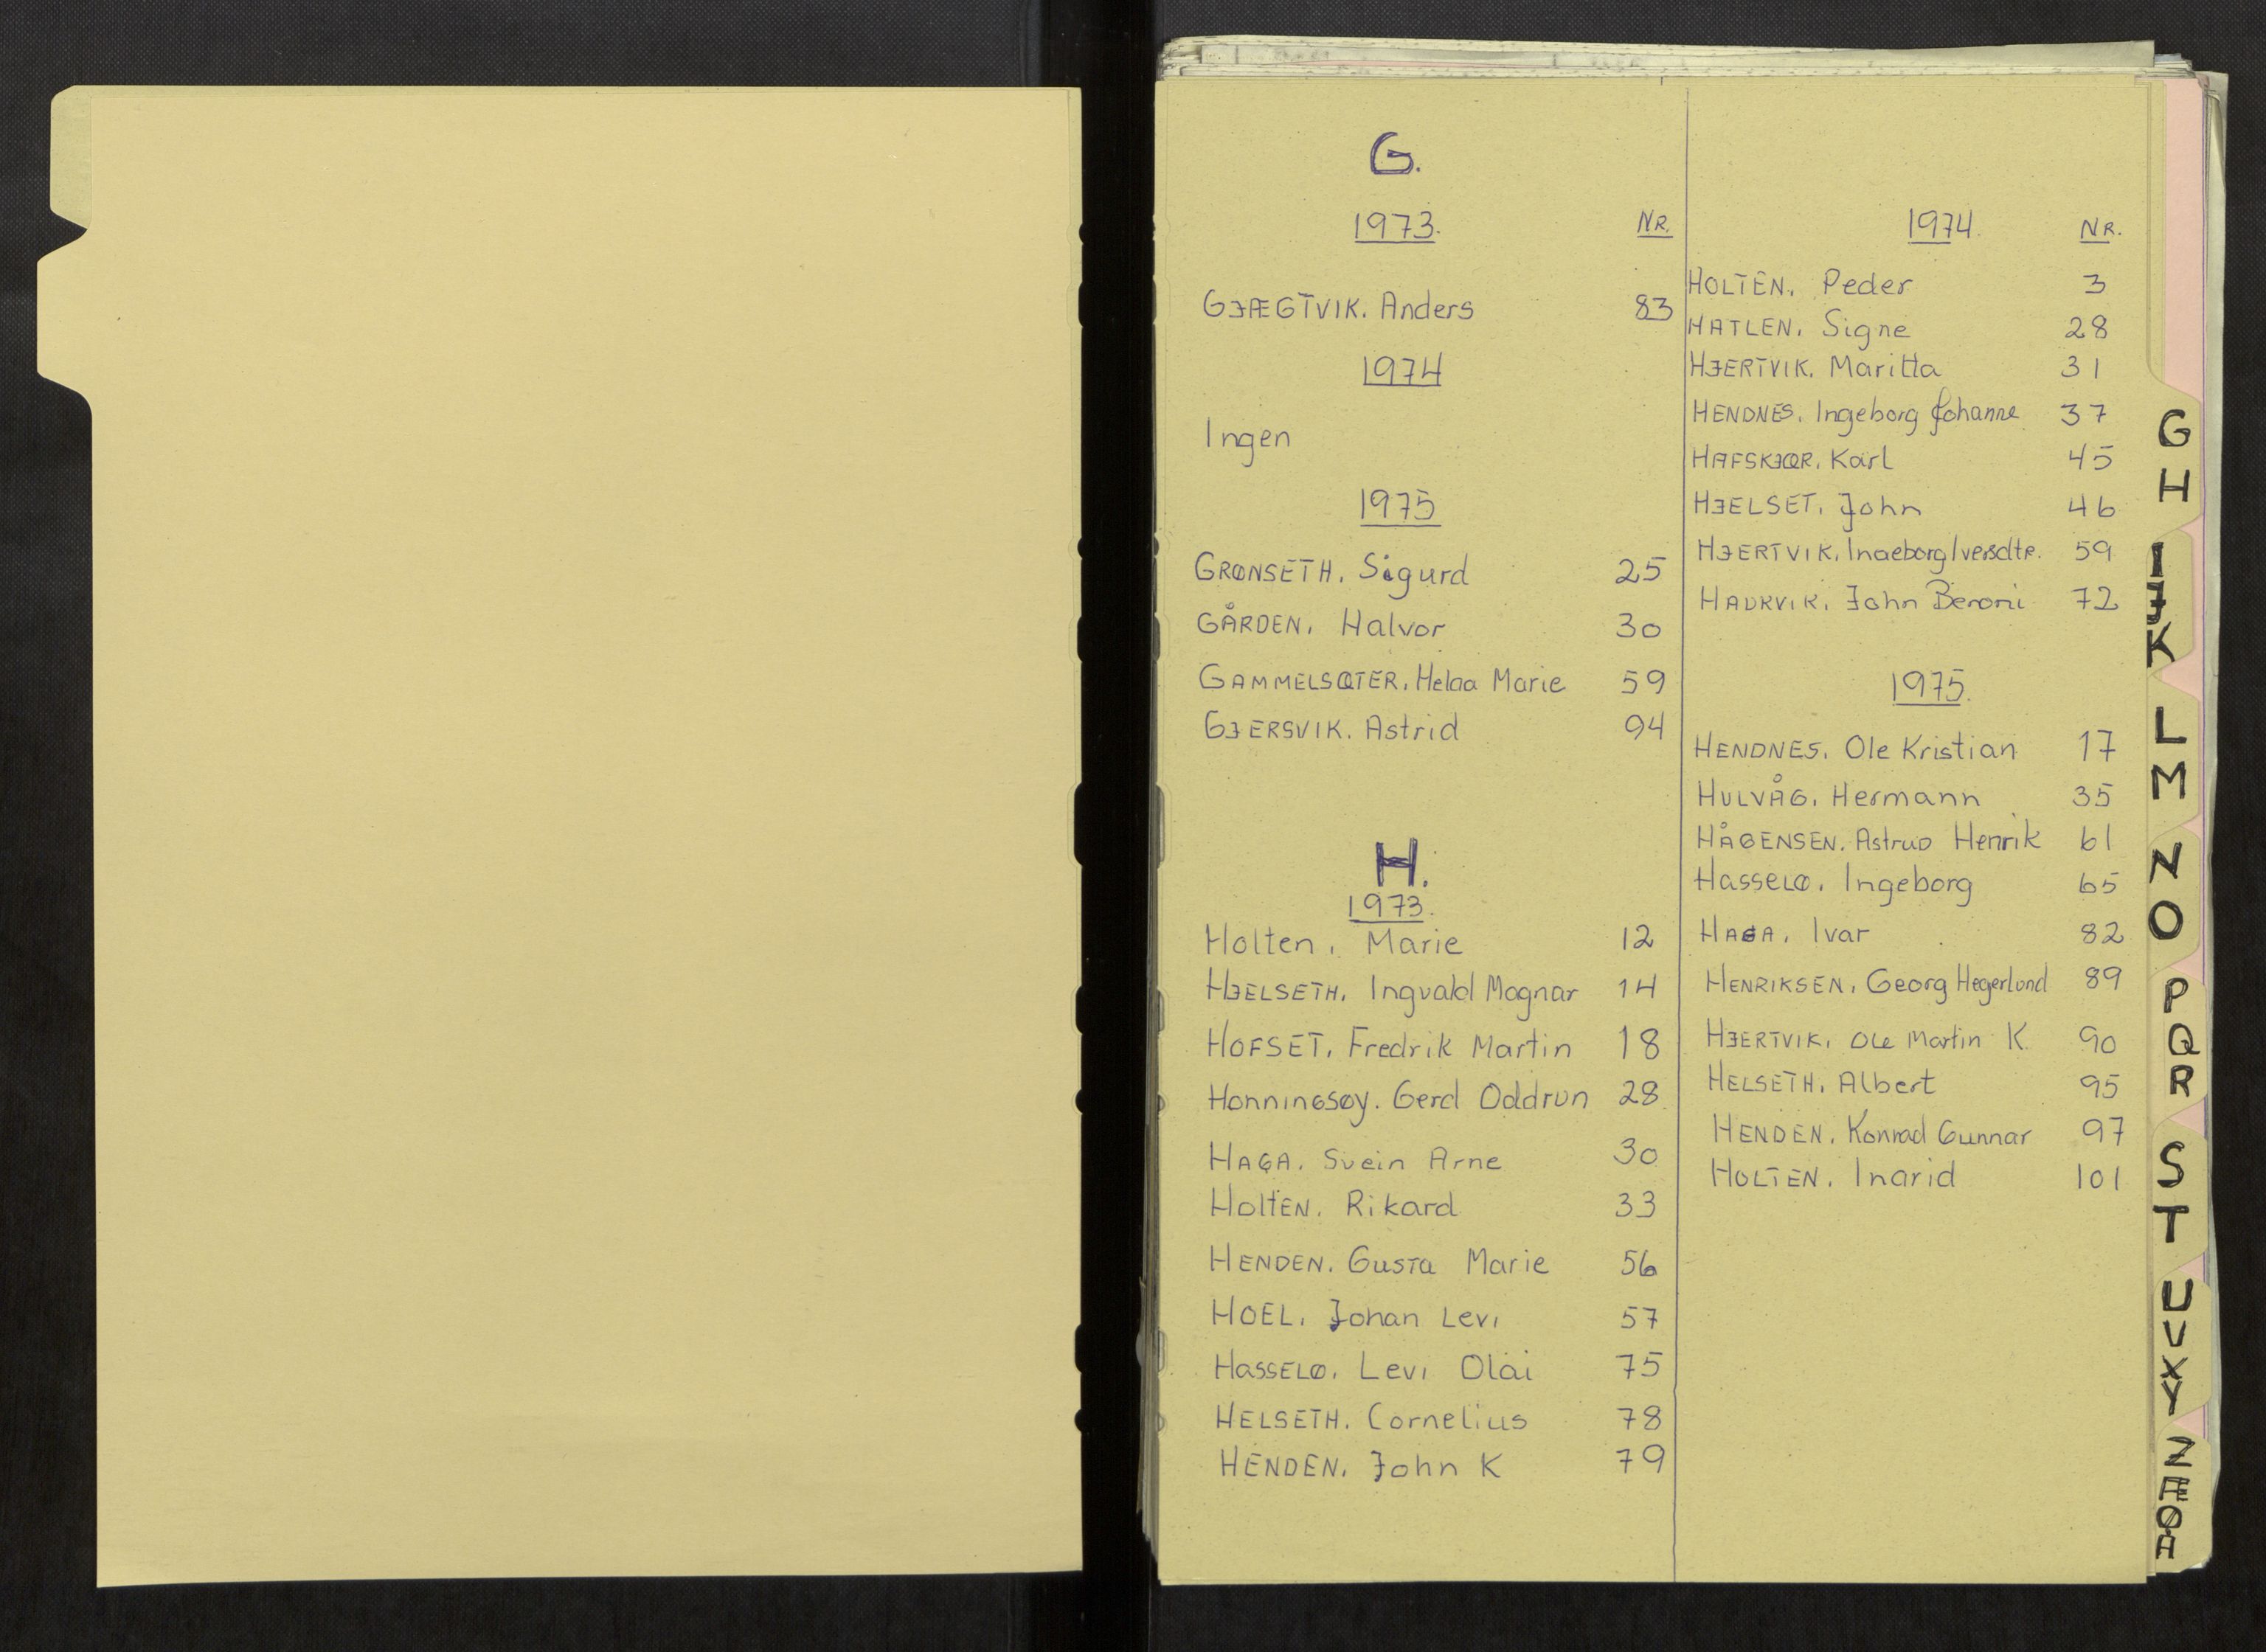 G.
1973. NR.
GJÆGTVIK. Anders 83
1974
Ingen
1975
GRØNSETH. Sigurd 25
GÅRDEN. Halvor 30
GAMMELSÆTER. Helga Marie 59
GJERSVIK. Astrid 94
H.
1973.
Holten. Marie 12
HJELSETH. Ingvald Magnar 14
HOFSET. Fredrik Martin 18
HONNINGSØY. Gerd Oddrun 28
HAGA. Svein Arne 30
HOLTEN. Rikard 33
HENDEN. Gusta Marie 56
HOEL. Johan Levi 57
HASSELØ. Levi Olai 75
HELSETH. Cornelius 78
HENDEN. John K 79
1974. NR.
HOLTEN. Peder 3
HATLEN. Signe 28
HJERTVIK. Maritta 31
HENDNES. Ingeborg Johanne 37
HAFSKJÆR. Karl 45
HJELSET. John 46
HJERTVIK. Ingeborg Iversdtr. 59
HAUKVIK. John Beroni 72
1975.
HENDNES. Ole Kristian 17
HULVÅG. Hermann 35
HÅGENSEN. Astrup Henrik 61
HASSELØ. Ingeborg 65
HAGA. Ivar 82
HENRIKSEN. Georg Hegerlund 89
HJERTVIK. Ole Martin K. 90
HELSETH. Albert 95
HENDEN. Konrad Gunnar 97
HOLTEN. Ingrid 101
G
H
I
J
K
L
M
N
O
P
Q
R
S
T
U
V
X
Y
Z
Æ
Ø
Å